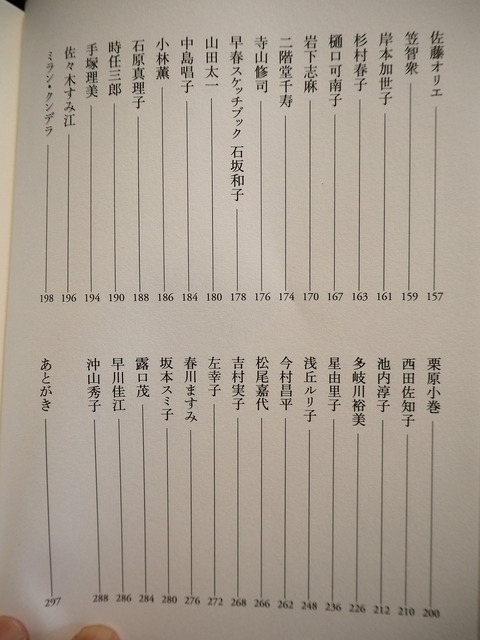 佐藤オリエ 157
笠智衆 159
岸本加世子 161
杉村春子 163
樋口可南子 167
岩下志麻 170
二階堂千寿 174
寺山修司 176
早春スケッチブック 石坂和子 178
山田太一 180
中島唱子 184
小林薫 186
石原真理子 188
時任三郎 190
手塚理美 194
佐々木すみ江 196
ミラン・クンデラ 198
栗原小巻 200
西田佐知子 210
池内淳子 212
多岐川裕美 226
星由里子 236
浅丘ルリ子 248
今村昌平 262
松尾嘉代 266
吉村実子 268
左幸子 272
春川ますみ 276
坂本スミ子 280
露口茂 284
早川佳江 286
沖山秀子 288
あとがき 297